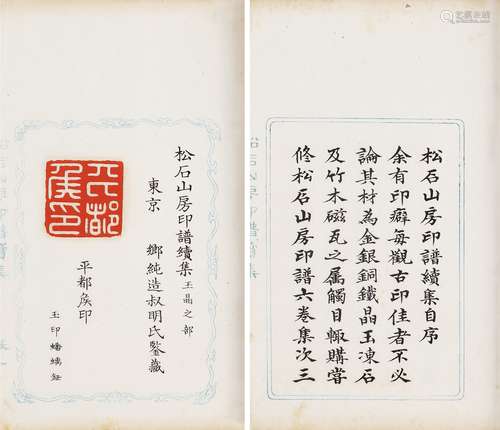 松石山房印譜續集自序
余有印癖每觀古印佳者不必
論其材為金銀銅鐵晶玉凍石
及竹木磁瓦之屬觸目輙購嘗
修松石山房印譜六卷集次三
松石山房印譜續集玉晶之部
東京 鄉純造叔明氏鑒藏
平都矦印
平都矦印
玉印蟠螭鈕